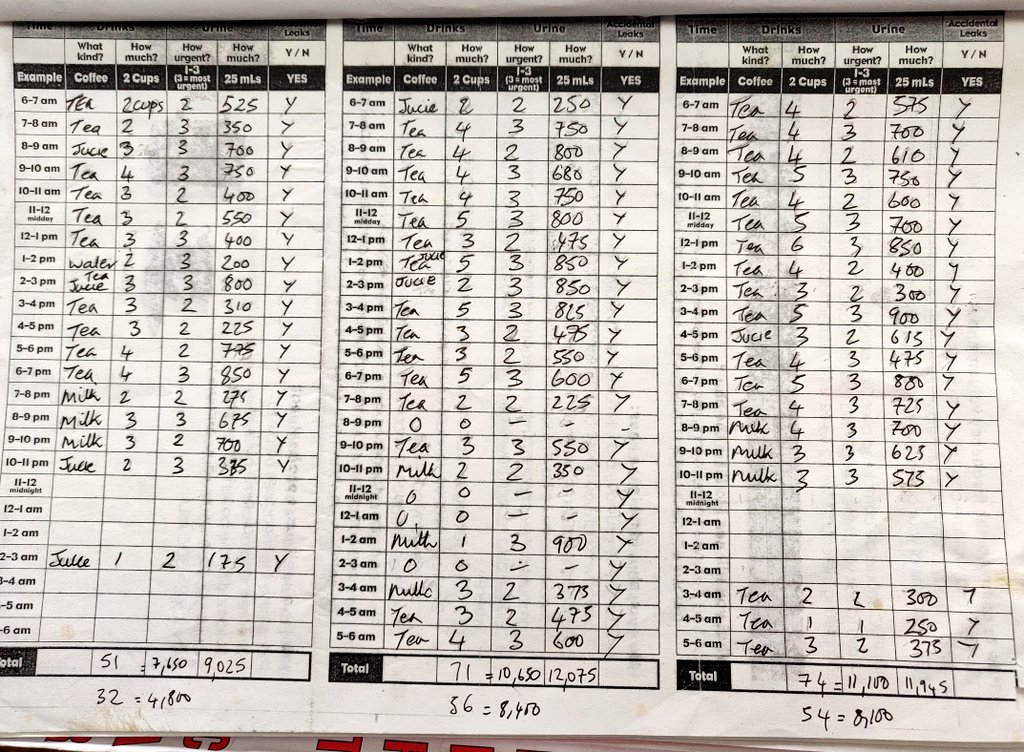 Time Drinks Urine Accidental Leaks
What kind? How much? How urgent? How much? Y / N
Example Coffee 2 Cups 1-3 (3 = most urgent) 25 mLs YES
6-7 am TEA 2cups 2 525 Y
7-8 am Tea 2 3 350 Y
8-9 am Jucie 3 3 700 Y
9-10 am Tea 4 3 750 Y
10-11 am Tea 3 2 400 Y
11-12 midday Tea 3 2 550 Y
12-1 pm Tea 3 3 400 Y
1-2 pm water 2 3 200 Y
2-3 pm Tea Jucie 3 3 800 Y
3-4 pm Tea 3 2 310 Y
4-5 pm Tea 3 2 225 Y
5-6 pm Tea 4 2 775 Y
6-7 pm Tea 4 3 850 Y
7-8 pm Milk 2 2 275 Y
8-9 pm Milk 3 3 675 Y
9-10 pm Milk 3 2 700 Y
10-11 pm Jucie 2 3 Y
11-12 midnight
12-1 am
1-2 am
2-3 am Juice 1 2 175 Y
3-4 am
-5 am
-6 am
Total 51 = 7,650 9,025
32 = 4,800
Time Drinks Urine Accidental Leaks
What kind? How much? How urgent? How much? Y / N
Example Coffee 2 Cups 1-3 (3 = most urgent) 25 mLs YES
6-7 am Jucie 2 2 250 Y
7-8 am Tea 4 3 750 Y
8-9 am Tea 4 2 800 Y
9-10 am Tea 4 3 680 Y
10-11 am Tea 4 3 750 Y
11-12 midday Tea 5 3 800 Y
12-1 pm Tea 3 2 475 Y
1-2 pm Tea Jucie 5 3 850 Y
2-3 pm Jucie 2 3 850 Y
3-4 pm Tea 5 3 825 Y
4-5 pm Tea 3 2 475 Y
5-6 pm Tea 3 2 550 Y
6-7 pm Tea 5 3 600 Y
7-8 pm Tea 2 2 225 Y
8-9 pm 0 0 - - -
9-10 pm Tea 3 3 550 Y
10-11 pm Milk 2 2 350 Y
11-12 midnight 0 0 - - Y
12-1 am 0 0 - - Y
1-2 am Milk 1 3 900 Y
2-3 am 0 0 - - Y
3-4 am Milk 3 2 375 Y
4-5 am Tea 3 2 475 Y
5-6 am Tea 4 3 600 Y
Total 71 = 10,650 12,075
56 = 8,400
Time Drinks Urine Accidental Leaks
What kind? How much? How urgent? How much? Y / N
Example Coffee 2 Cups 1-3 (3 = most urgent) 25 mLs YES
6-7 am Tea 4 2 575 Y
7-8 am Tea 4 3 700 Y
8-9 am Tea 4 2 610 Y
9-10 am Tea 5 3 750 Y
10-11 am Tea 4 2 600 Y
11-12 midday Tea 5 3 700 Y
12-1 pm Tea 6 3 850 Y
1-2 pm Tea 4 2 400 Y
2-3 pm Tea 3 2 300 Y
3-4 pm Tea 5 3 900 Y
4-5 pm Jucie 3 2 615 Y
5-6 pm Tea 4 3 475 Y
6-7 pm Tea 5 3 800 Y
7-8 pm Tea 4 3 725 Y
8-9 pm Milk 4 3 700 Y
9-10 pm Milk 3 3 625 Y
10-11 pm Milk 3 3 575 Y
11-12 midnight
12-1 am
1-2 am
2-3 am
3-4 am Tea 2 2 300 Y
4-5 am Tea 1 1 250 Y
5-6 am Tea 3 2 375 Y
Total 74 = 11,100 11,945
54 = 8,100